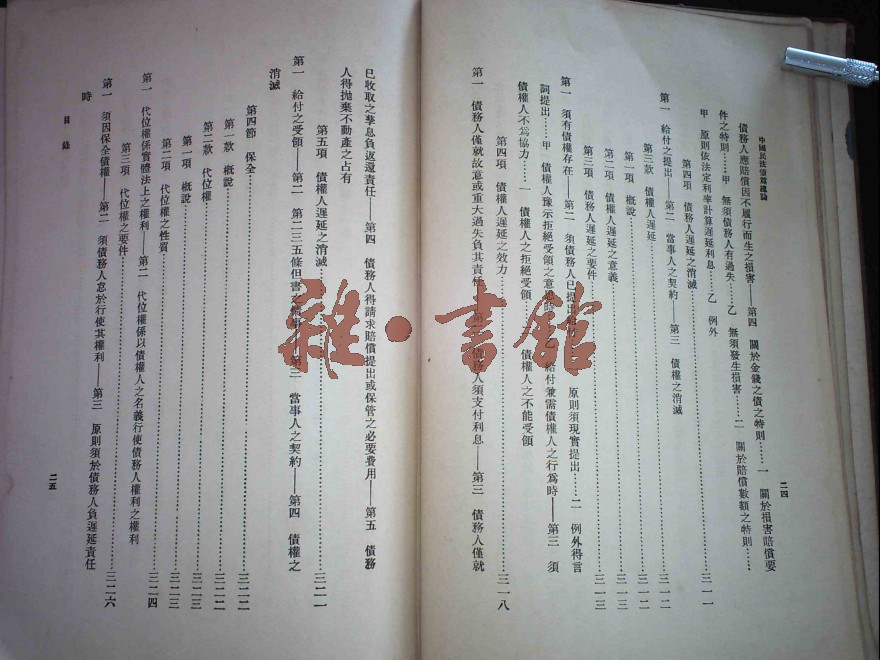 中國民法債篇總論
二四
債務人應賠償因不履行而生之損害——第四 關於金錢之債之特則……一 關於損害賠償要
件之特則……甲 無須債務人有過失……乙 無須發生損害……二 關於賠償數額之特則……
甲 原則依法定利率計算遲延利息……乙 例外
第四項 債務人遲延之消滅……三一一
第一 給付之提出——第二 當事人之契約——第三 債權之消滅
第三款 債權人遲延……三一二
第一項 概說……三一二
第二項 債權人遲延之意義……三一三
第三項 債權人遲延之要件……三一三
第一 須有債權存在——第二 須債務人已提出 原則須現實提出……二 例外得言
詞提出……甲 債權人豫示拒絕受領之意思 乙 給付兼需債權人之行爲時——第三 須
債權人不爲協力……一 債權人之拒絕受領 債權人之不能受領
第四項 債權人遲延之效力……三一八
第一 債務人僅就故意或重大過失負其責任——第二 債務人須支付利息——第三 債務人僅就
已收取之孳息負返還責任——第四 債務人得請求賠償提出或保管之必要費用——第五 債務
人得拋棄不動產之占有
第五項 債權人遲延之消滅……三二一
第一 給付之受領——第二 第二三五條但書之情事——第三 當事人之契約——第四 債權之
消滅
第四節 保全……三二二
第一款 概說……三二二
第二款 代位權……三二二
第一項 概說……三二三
第二項 代位權之性質……三二三
第一 代位權係實體法上之權利——第二 代位權係以債權人之名義行使債務人權利之權利
第三項 代位權之要件……三二四
第一 須因保全債權——第二 須債務人怠於行使其權利——第三 原則須於債務人負遲延責任
時……三二六
目錄
二五
雜·書館